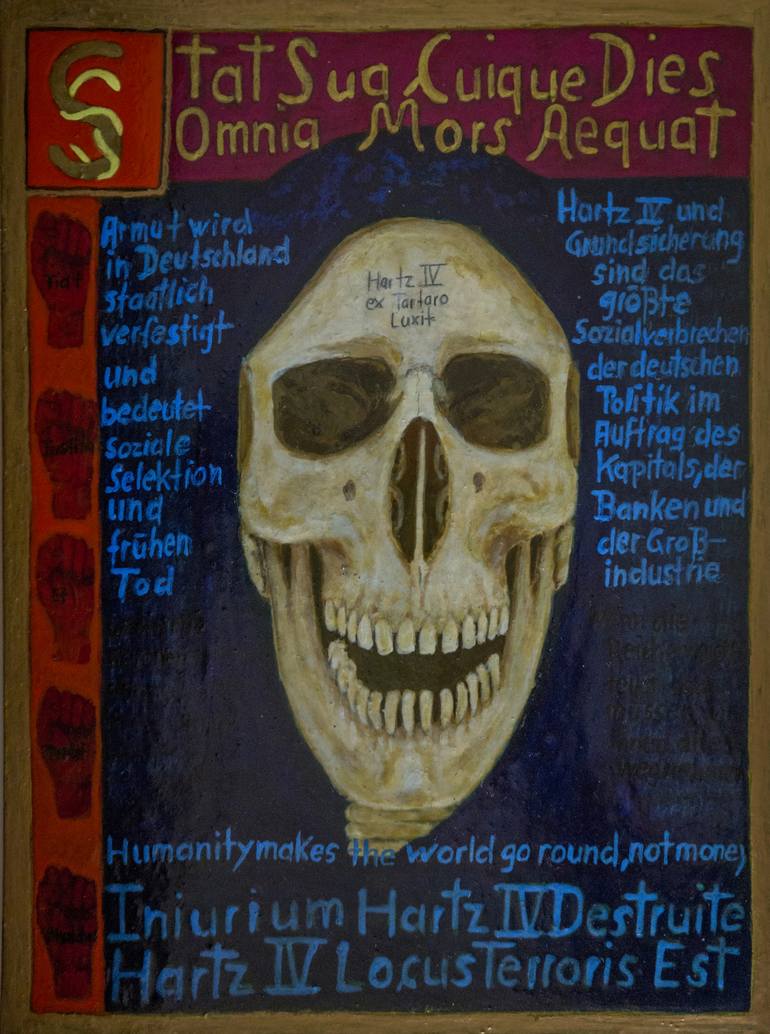 Stat Sua Cuique Dies
Omnia Mors Aequat
Armut wird
in Deutschland
staatlich
verfestigt
und
bedeutet
soziale
Selektion
und
frühen
Tod
Hartz IV
ex Tartaro
Luxit
Hartz IV und
Grundsicherung
sind das
größte
Sozialverbrechen
der deutschen
Politik im
Auftrag des
Kapitals, der
Banken und
der Groß-
industrie
Humanity makes the world go round, not money
Iniurium Hartz IV Destruite
Hartz IV Locus Terroris Est